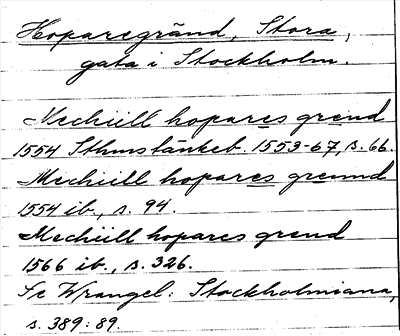 Hoparegränd, Stora,
gata i Stockholm.
Mechiill hopares grend
1554 Sthms tänkeb. 1553-67, s. 66.
Mechiill hopares greund
1554 ib., s. 94.
Mechiill hopares grend
1566 ib., s. 326.
Se Wrangel: Stockholmiana,
s. 389: 89.